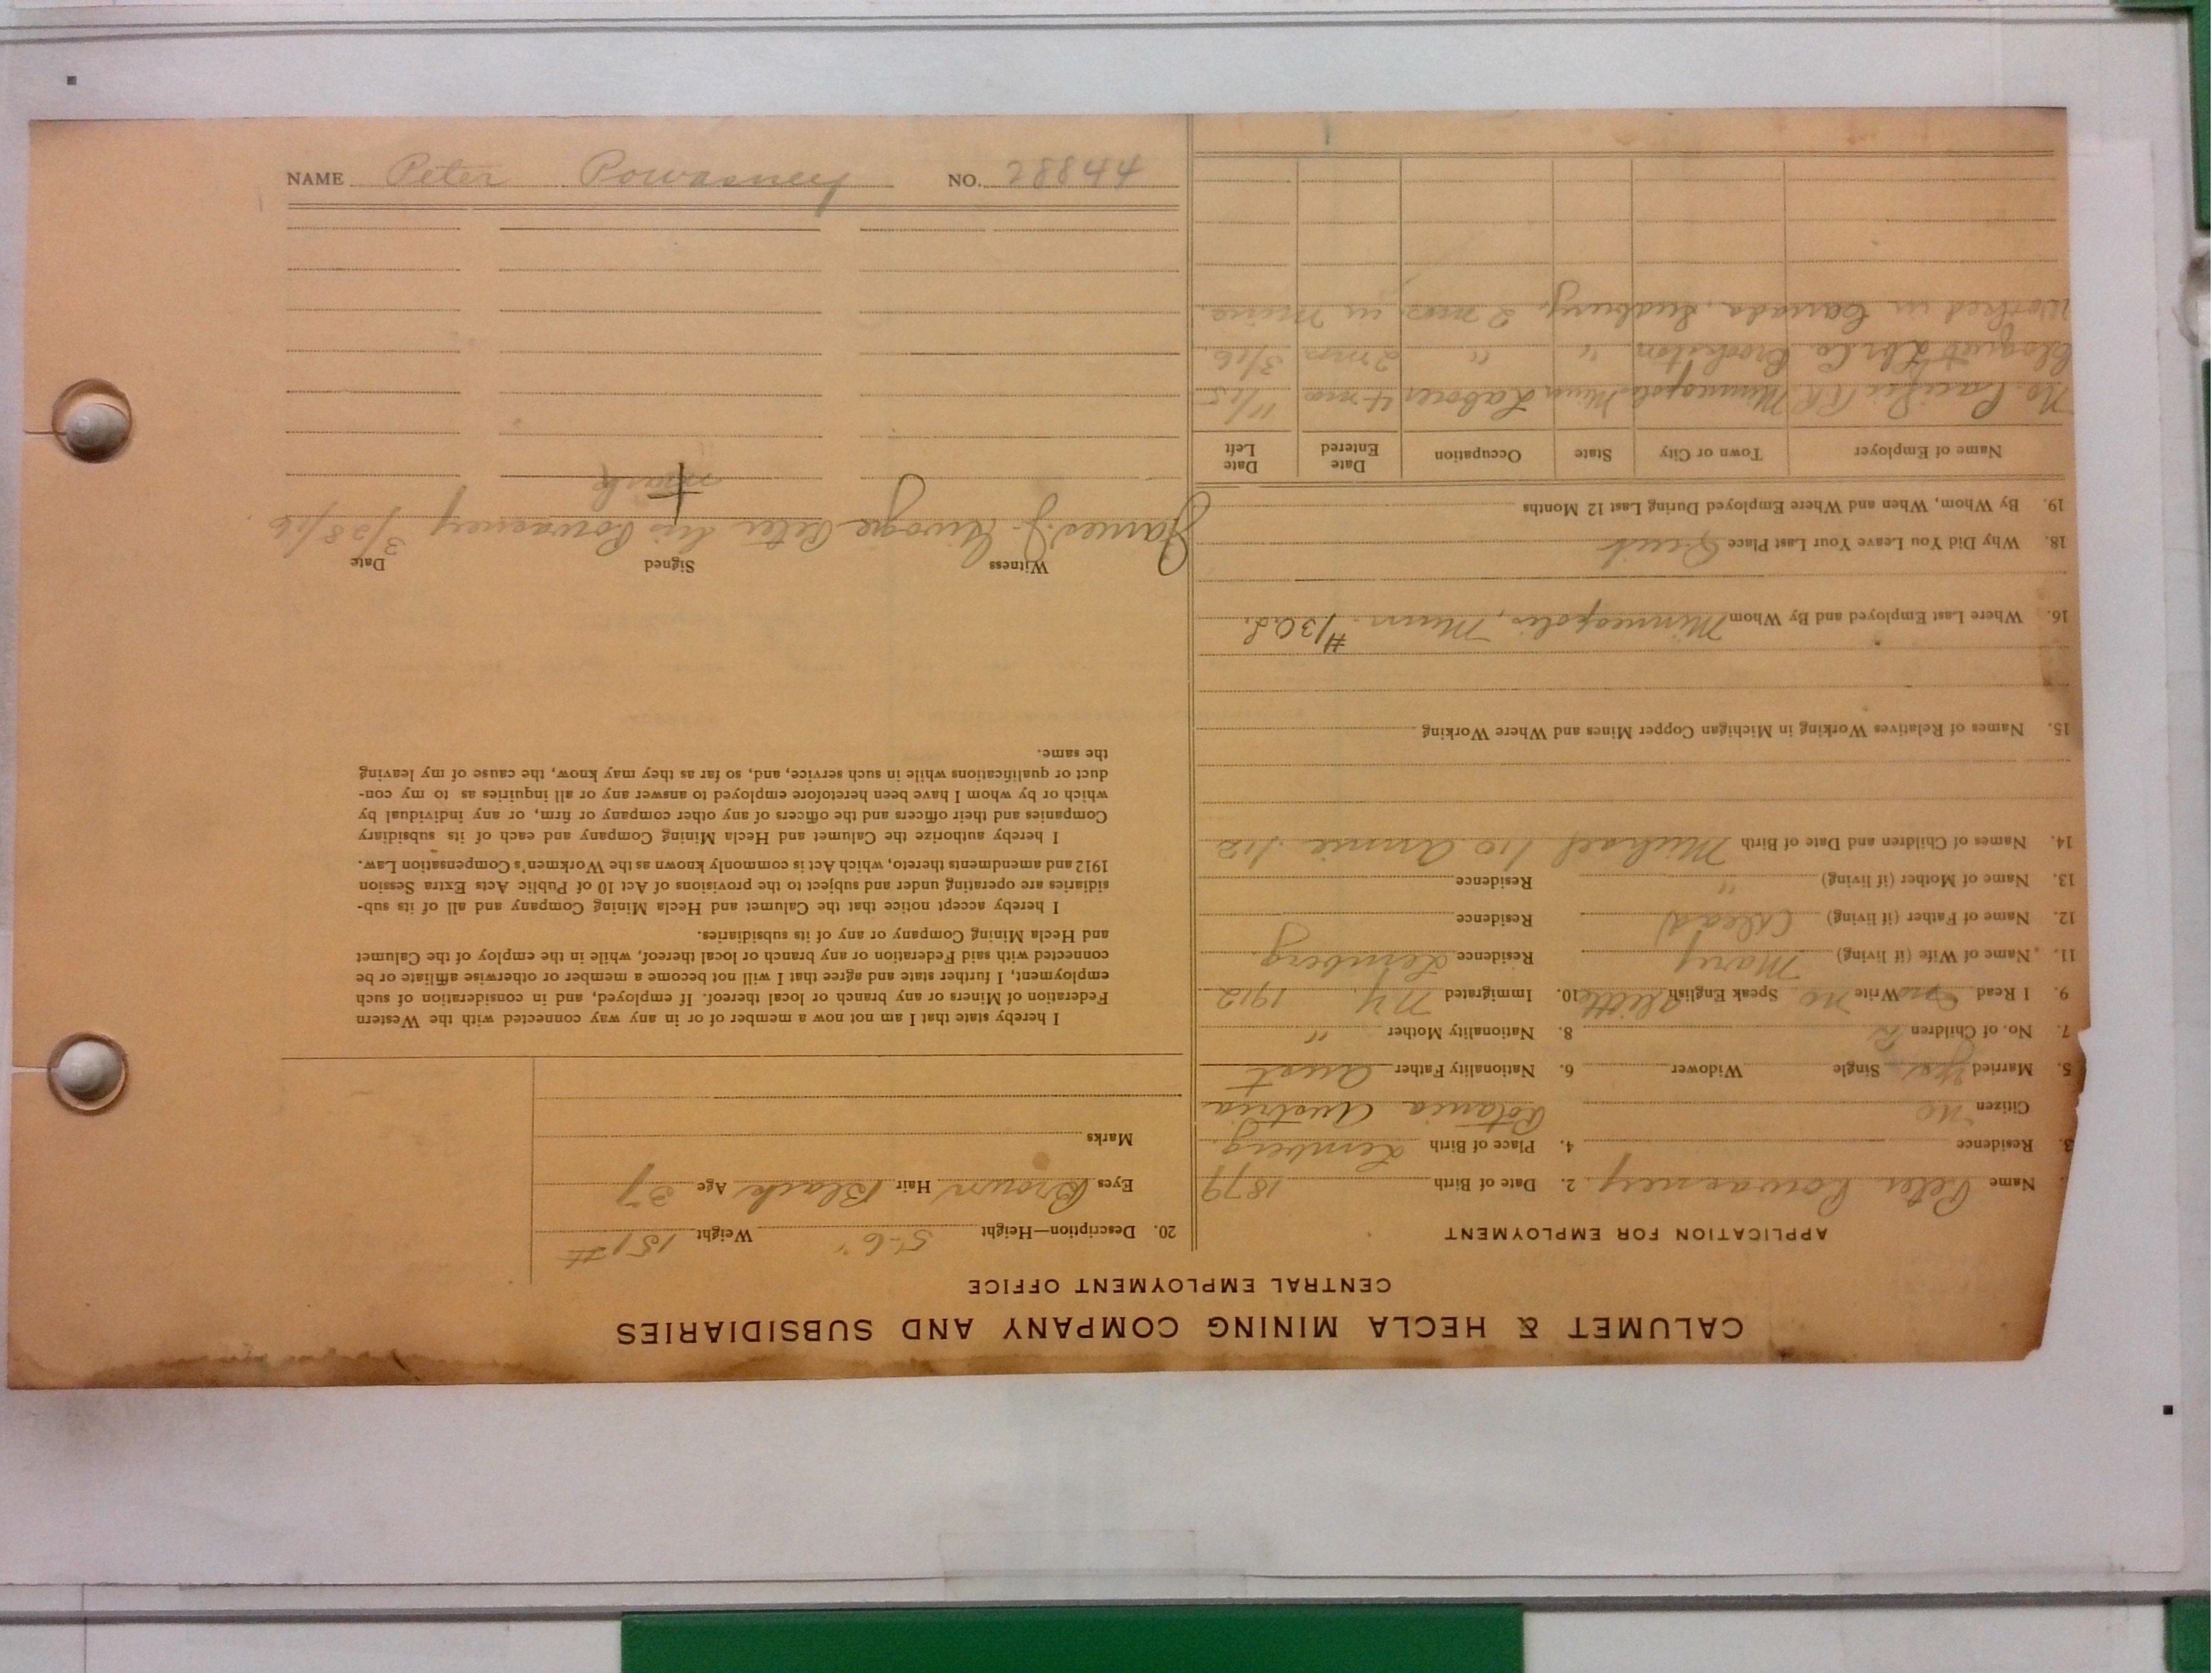 CALUMET & HECLA MINING COMPANY AND SUBSIDIARIES
CENTRAL EMPLOYMENT OFFICE
APPLICATION FOR EMPLOYMENT
Name Peter Powasney 2. Date of Birth 1879
3. Residence 4. Place of Birth Lemberg.
Citizen no Austria
5. Married yes Single Widower 6. Nationality Father Aust
7. No. of Children 2 8. Nationality Mother "
9. I Read no Write no Speak English little 10. Immigrated N.Y. 1912
11. Name of Wife (if living) Mary Residence Lemberg.
12. Name of Father (if living) (dead) Residence
13. Name of Mother (if living) " Residence
14. Names of Children and Date of Birth Michael 1/10 Annie 1/12
15. Names of Relatives Working in Michigan Copper Mines and Where Working
16. Where Last Employed and By Whom Minneapolis, Minn. #130.L.
18. Why Did You Leave Your Last Place Quit
19. By Whom, When and Where Employed During Last 12 Months
Name of Employer Town or City State Occupation Date Entered Date Left
No. Pacific RR Minneapolis Minn Laborer 4 mos 11/15
Cloquet Lbr. Co. Brookston " " 2 mos 3/16.
Worked in Canada, Sudbury, 2 mos. in mine.
20. Description—Height 5'-6" Weight 151#
Eyes Brown Hair Black Age 37
Marks
I hereby state that I am not now a member of or in any way connected with the Western
Federation of Miners or any branch or local thereof. If employed, and in consideration of such
employment, I further state and agree that I will not become a member or otherwise affiliate or be
connected with said Federation or any branch or local thereof, while in the employ of the Calumet
and Hecla Mining Company or any of its subsidiaries.
I hereby accept notice that the Calumet and Hecla Mining Company and all of its sub-
sidiaries are operating under and subject to the provisions of Act 10 of Public Acts Extra Session
1912 and amendments thereto, which Act is commonly known as the Workmen's Compensation Law.
I hereby authorize the Calumet and Hecla Mining Company and each of its subsidiary
Companies and their officers and the officers of any other company or firm, or any individual by
which or by whom I have been heretofore employed to answer any or all inquiries as to my con-
duct or qualifications while in such service, and, so far as they may know, the cause of my leaving
the same.
Witness Signed Date
James J. Peter his Powasney 3/28/16
mark
NAME Peter Powasney NO. 28844